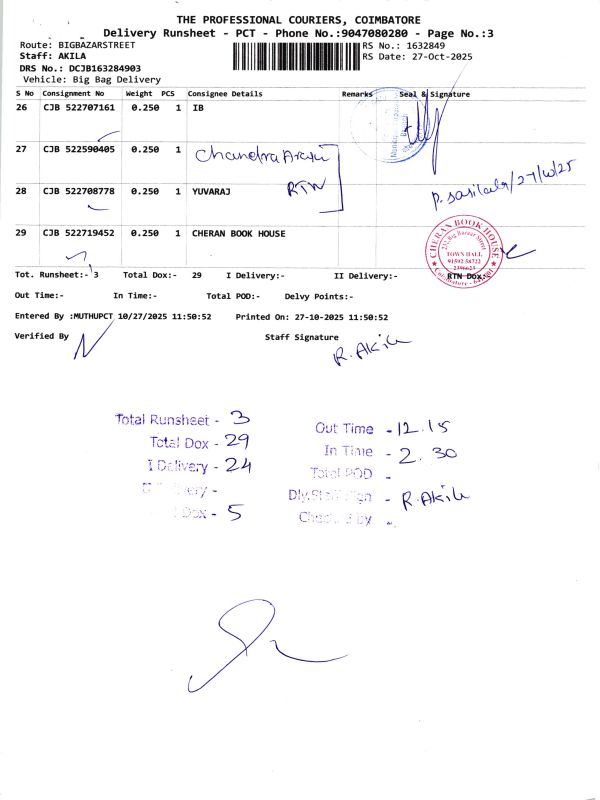 THE PROFESSIONAL COURIERS, COIMBATORE
Delivery Runsheet - PCT - Phone No.:9047080280 - Page No.:3
Route: BIGBAZARSTREET RS No.: 1632849
Staff: AKILA RS Date: 27-Oct-2025
DRS No.: DCJB163284903
Vehicle: Big Bag Delivery
S No Consignment No Weight PCS Consignee Details Remarks Seal & Signature
26 CJB 522707161 0.250 1 IB
27 CJB 522590405 0.250 1
RTN
28 CJB 522708778 0.250 1 YUVARAJ
27/10/25
29 CJB 522719452 0.250 1 CHERAN BOOK HOUSE
CHERAN BOOK HOUSE
255, Big Bazaar Street
TOWN HALL
91592 58722
2396623
Coimbatore - 641 001
Tot. Runsheet:- 3 Total Dox:- 29 I Delivery:- II Delivery:- RTN Dox:-
Out Time:- In Time:- Total POD:- Delvy Points:-
Entered By :MUTHUPCT 10/27/2025 11:50:52 Printed On: 27-10-2025 11:50:52
Verified By Staff Signature
R.Akila
Total Runsheet - 3
Total Dox - 29
I Delivery - 24
Dox - 5
Out Time - 12.15
In Time - 2.30
Total POD -
Dly.Staff Sign - R.Akila
Checked by -